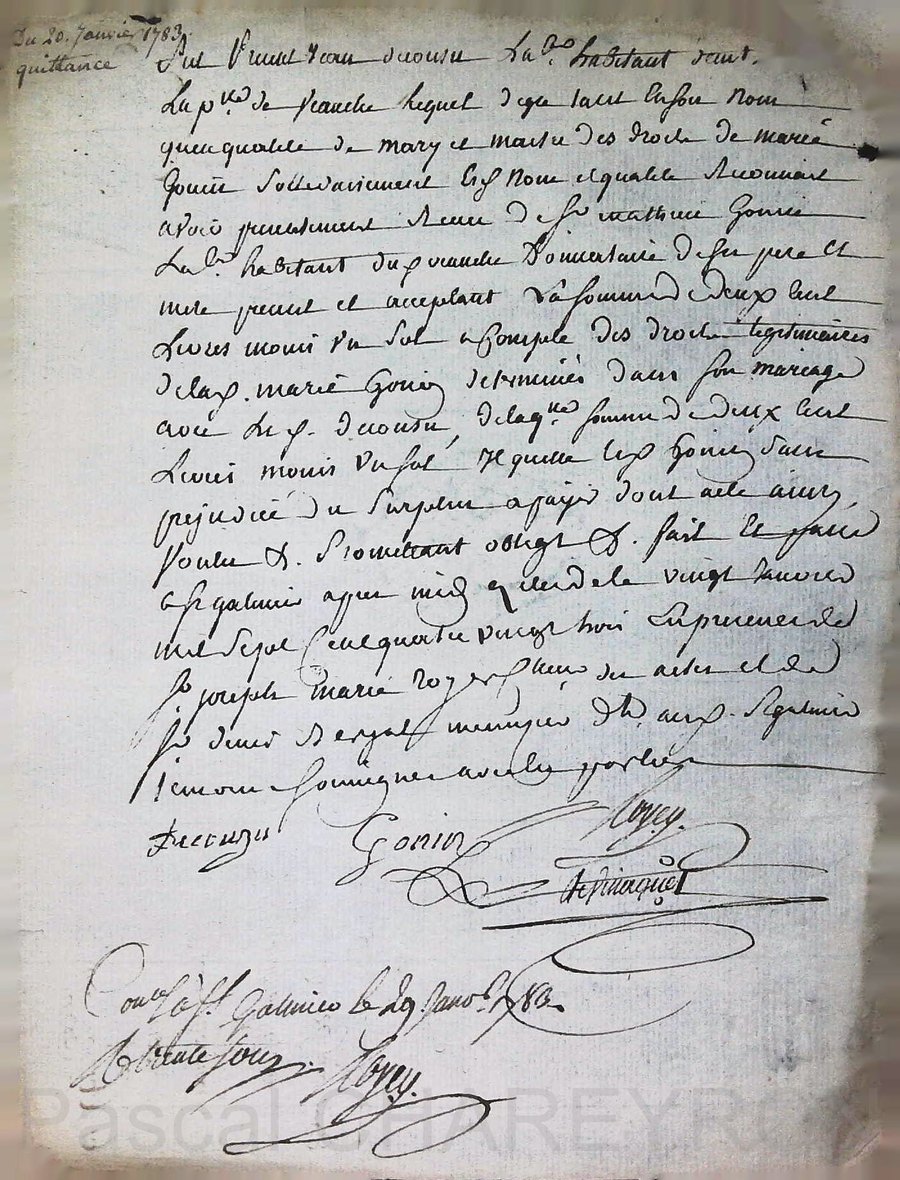 Du 20. Janvier 1783.
quittance
Fut present Jean decousu La.r habitant
La p.sse de veauche lequel de gré tant en son nom
qu'en qualité de mary et maitre des droits de marié
Gonin solidairement esd nom et qualité reconnait
avoir presentement receu de s.r mathieu Gonin
Lab.r habitant dud veauche de ses pere et
mere present et acceptant La somme de deux cent
Livres moins un sol a Compte des droits legitimaires
de lad. marié Gonin determinés dans son mariage
avec led. decousu, de laq.lle somme de deux cent
Livres moins un sol quitte led Gonin sans
prejudice du surplus a payer dont acte ainsy
voulu &. Promettant obligt &. fait et passé
a s.t galmier apres midy le vingt Janvier
mil sept cent quatre vingt trois en presence de
s.r joseph marié royer des actes et de
s.r denis menuizier aud. S.t galmier
temoins soussignes avec les parties
Decouzu Gonin Royer.
Con.lé à S.t Galmier le 29. Janv.r 1783.
R trente sous. Royer.
Pascal CHAREYRON